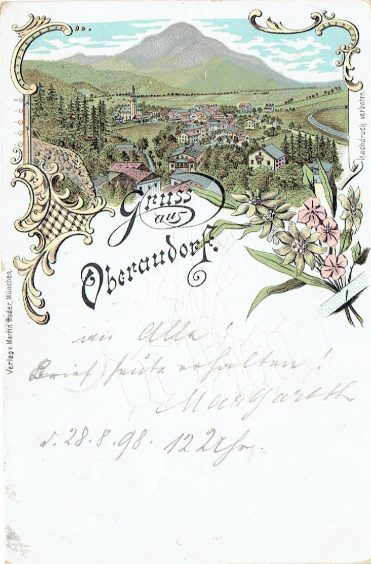 Nachdruck verboten.
Gruss
aus
Oberaudorf.
Verlag v. Martin Bader, München.
an Alle!
Brief heute erhalten!
Margareth
d. 28.8.98. 12 Uhr.